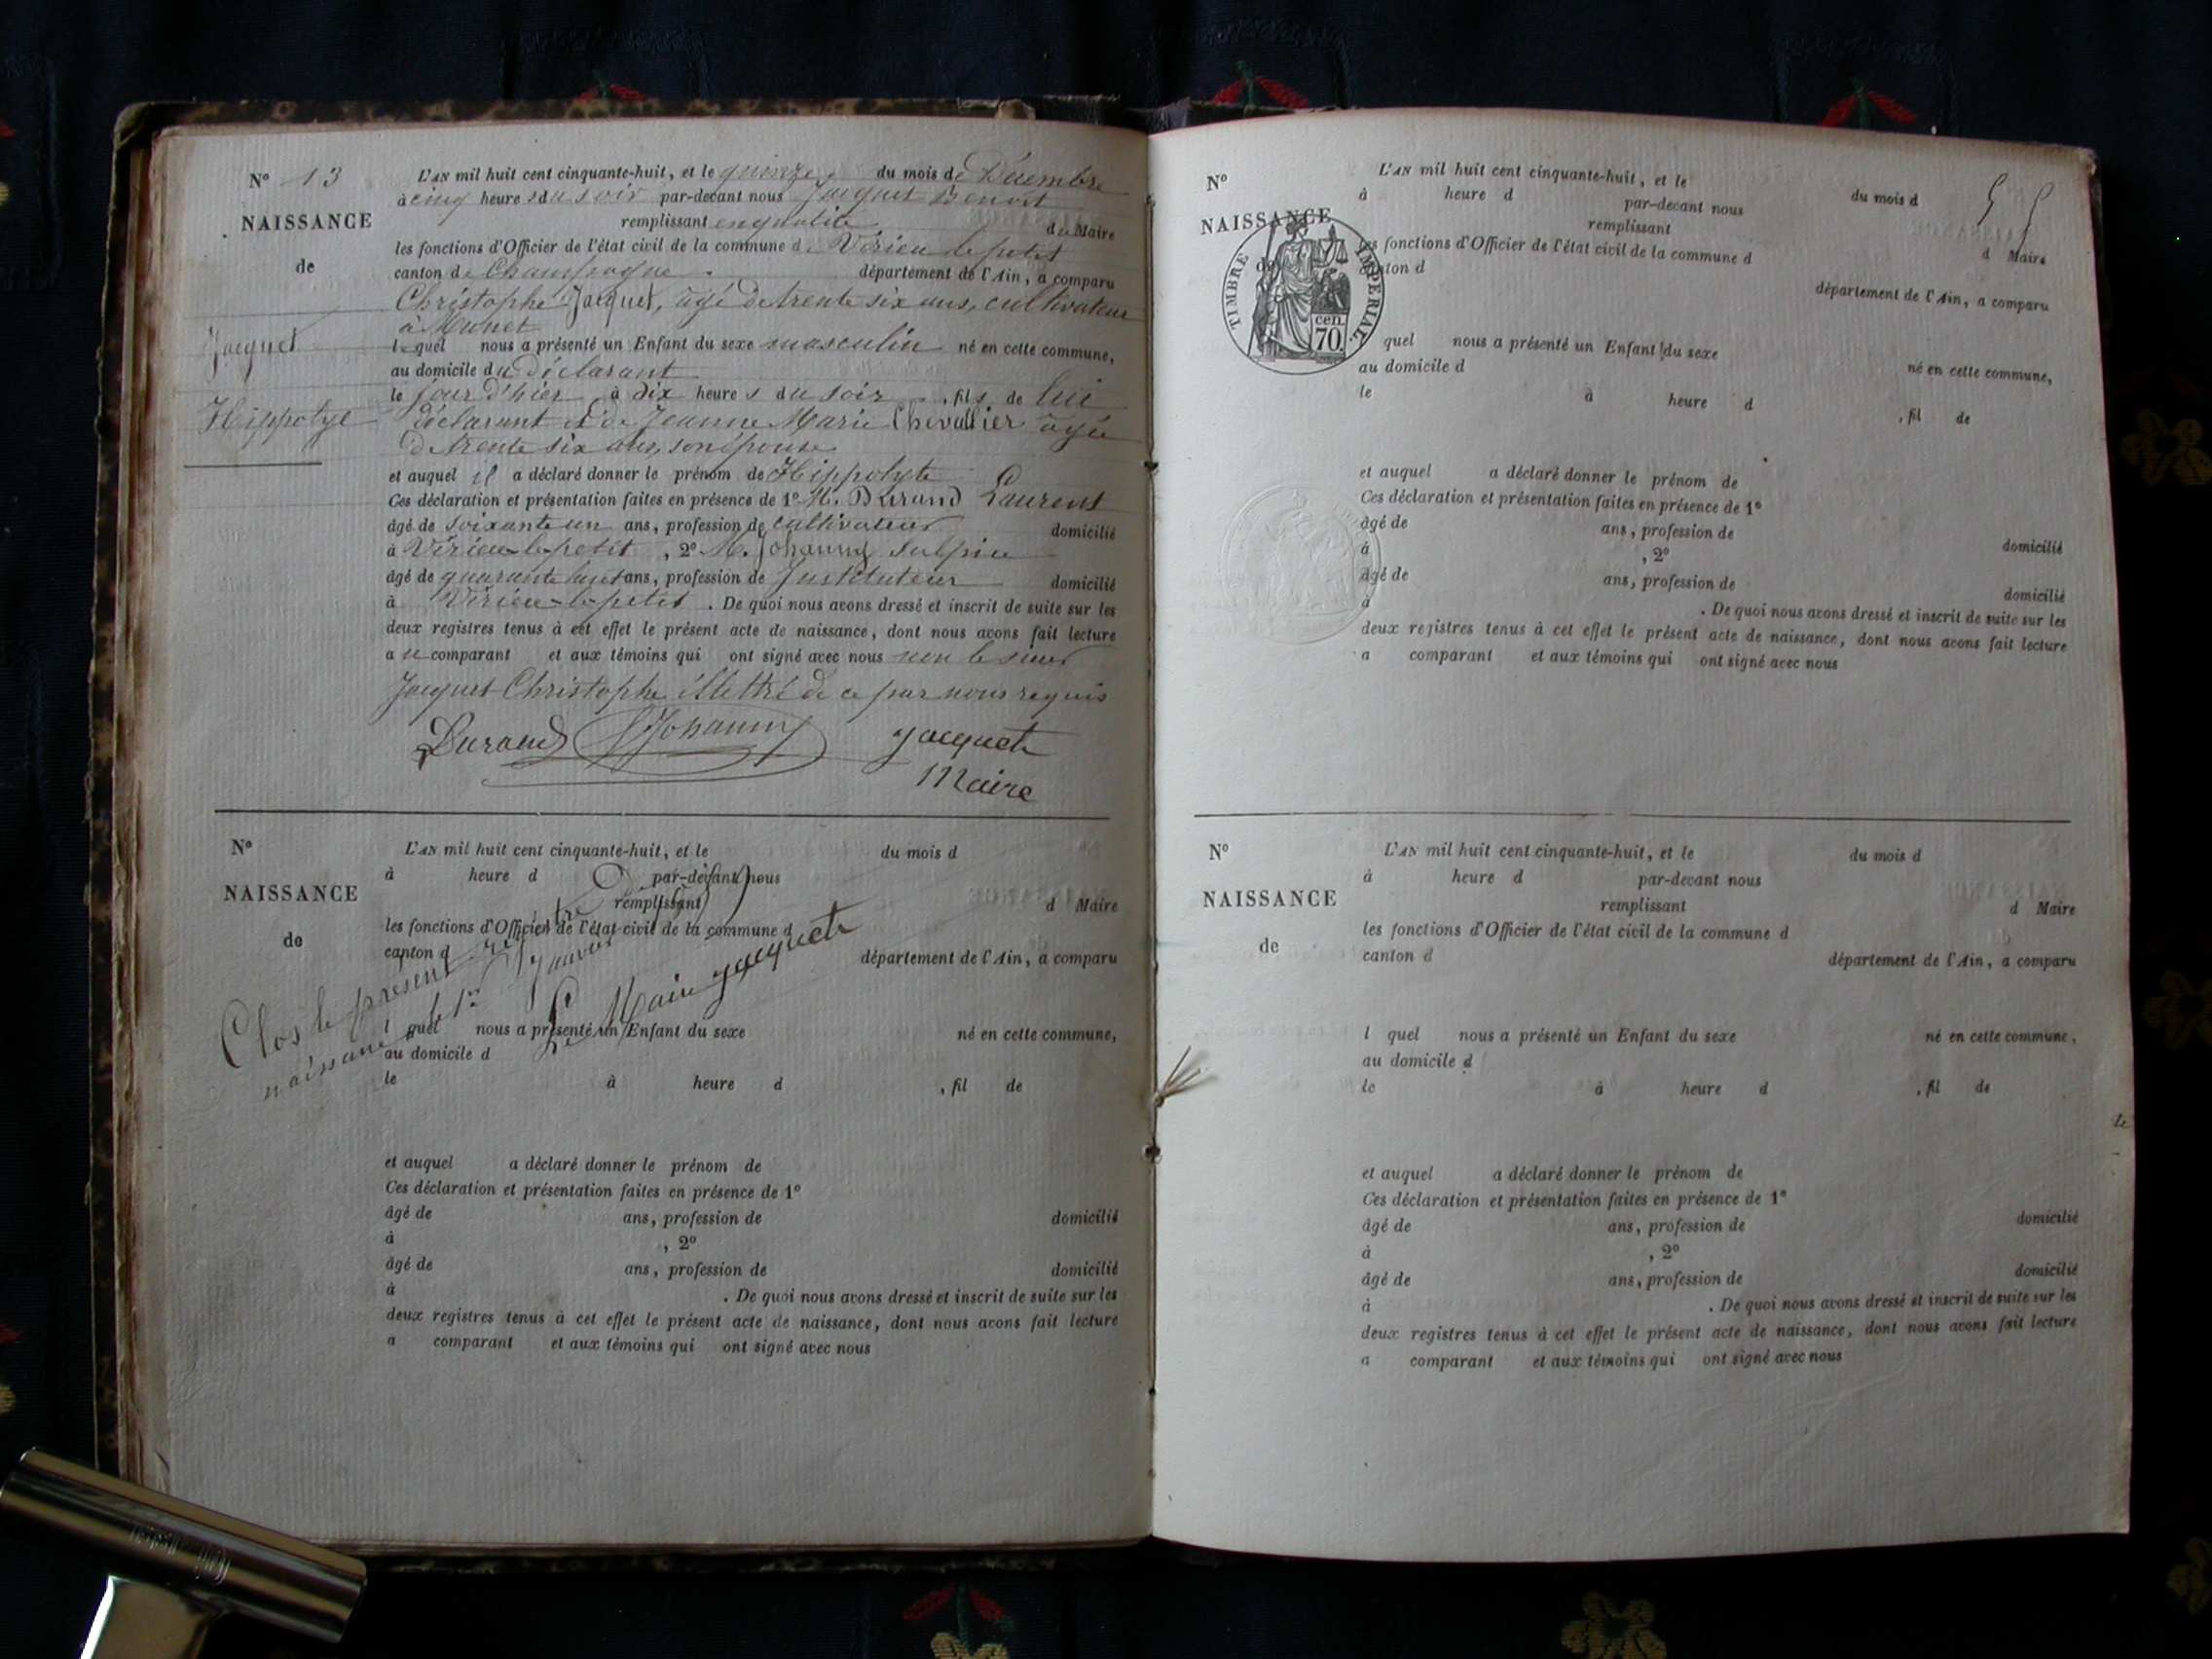 N° 13
NAISSANCE
de
Jacquet
Hippolyte
L'AN mil huit cent cinquante-huit, et le quinze du mois de Décembre
à cinq heures du soir par-devant nous Jacquet Benoit
remplissant en qualité de Maire
les fonctions d'Officier de l'état civil de la commune de Virieu-le-petit
canton de Champagne. département de l'Ain, a comparu
Christophe Jacquet, âgé de trente six ans, cultivateur
à Munet
lequel nous a présenté un Enfant du sexe masculin né en cette commune,
au domicile du déclarant
le jour d'hier à dix heures du soir, fils de lui
déclarant et de Jeanne Marie Chevallier âgée
de trente six ans, son épouse
et auquel il a déclaré donner le prénom de Hippolyte
Ces déclaration et présentation faites en présence de 1° M. Durand Laurent
âgé de soixante un ans, profession de cultivateur domicilié
à Virieu-le-petit, 2° M. Johanny Sulpice
âgé de quarante huit ans, profession de Instituteur domicilié
à Virieu-le-petit. De quoi nous avons dressé et inscrit de suite sur les
deux registres tenus à cet effet le présent acte de naissance, dont nous avons fait lecture
au comparant et aux témoins qui ont signé avec nous non le sieur
Jacquet Christophe illettré de ce par nous requis
Durand Johanny Jacquet
Maire
N°
NAISSANCE
de
L'AN mil huit cent cinquante-huit, et le du mois d
à heure d par-devant nous
remplissant d Maire
les fonctions d'Officier de l'état civil de la commune d
canton d département de l'Ain, a comparu
Clos le présent registre
naissance le 1er Janvier
Le Maire Jacquet
l quel nous a présenté un Enfant du sexe né en cette commune,
au domicile d
le à heure d , fil de
et auquel a déclaré donner le prénom de
Ces déclaration et présentation faites en présence de 1°
âgé de ans, profession de domicilié
à , 2°
âgé de ans, profession de domicilié
à . De quoi nous avons dressé et inscrit de suite sur les
deux registres tenus à cet effet le présent acte de naissance, dont nous avons fait lecture
a comparant et aux témoins qui ont signé avec nous
N°
NAISSANCE
TIMBRE IMPERIAL.
cen.
70.
L'AN mil huit cent cinquante-huit, et le du mois d
à heure d par-devant nous
remplissant d Maire
les fonctions d'Officier de l'état civil de la commune d
canton d département de l'Ain, a comparu
quel nous a présenté un Enfant du sexe né en cette commune,
au domicile d
le à heure d , fil de
et auquel a déclaré donner le prénom de
Ces déclaration et présentation faites en présence de 1°
âgé de ans, profession de domicilié
à , 2°
âgé de ans, profession de domicilié
à . De quoi nous avons dressé et inscrit de suite sur les
deux registres tenus à cet effet le présent acte de naissance, dont nous avons fait lecture
a comparant et aux témoins qui ont signé avec nous
N°
NAISSANCE
de
L'AN mil huit cent cinquante-huit, et le du mois d
à heure d par-devant nous
remplissant d Maire
les fonctions d'Officier de l'état civil de la commune d
canton d département de l'Ain, a comparu
l quel nous a présenté un Enfant du sexe né en cette commune,
au domicile d
le à heure d , fil de
et auquel a déclaré donner le prénom de
Ces déclaration et présentation faites en présence de 1°
âgé de ans, profession de domicilié
à , 2°
âgé de ans, profession de domicilié
à . De quoi nous avons dressé et inscrit de suite sur les
deux registres tenus à cet effet le présent acte de naissance, dont nous avons fait lecture
a comparant et aux témoins qui ont signé avec nous